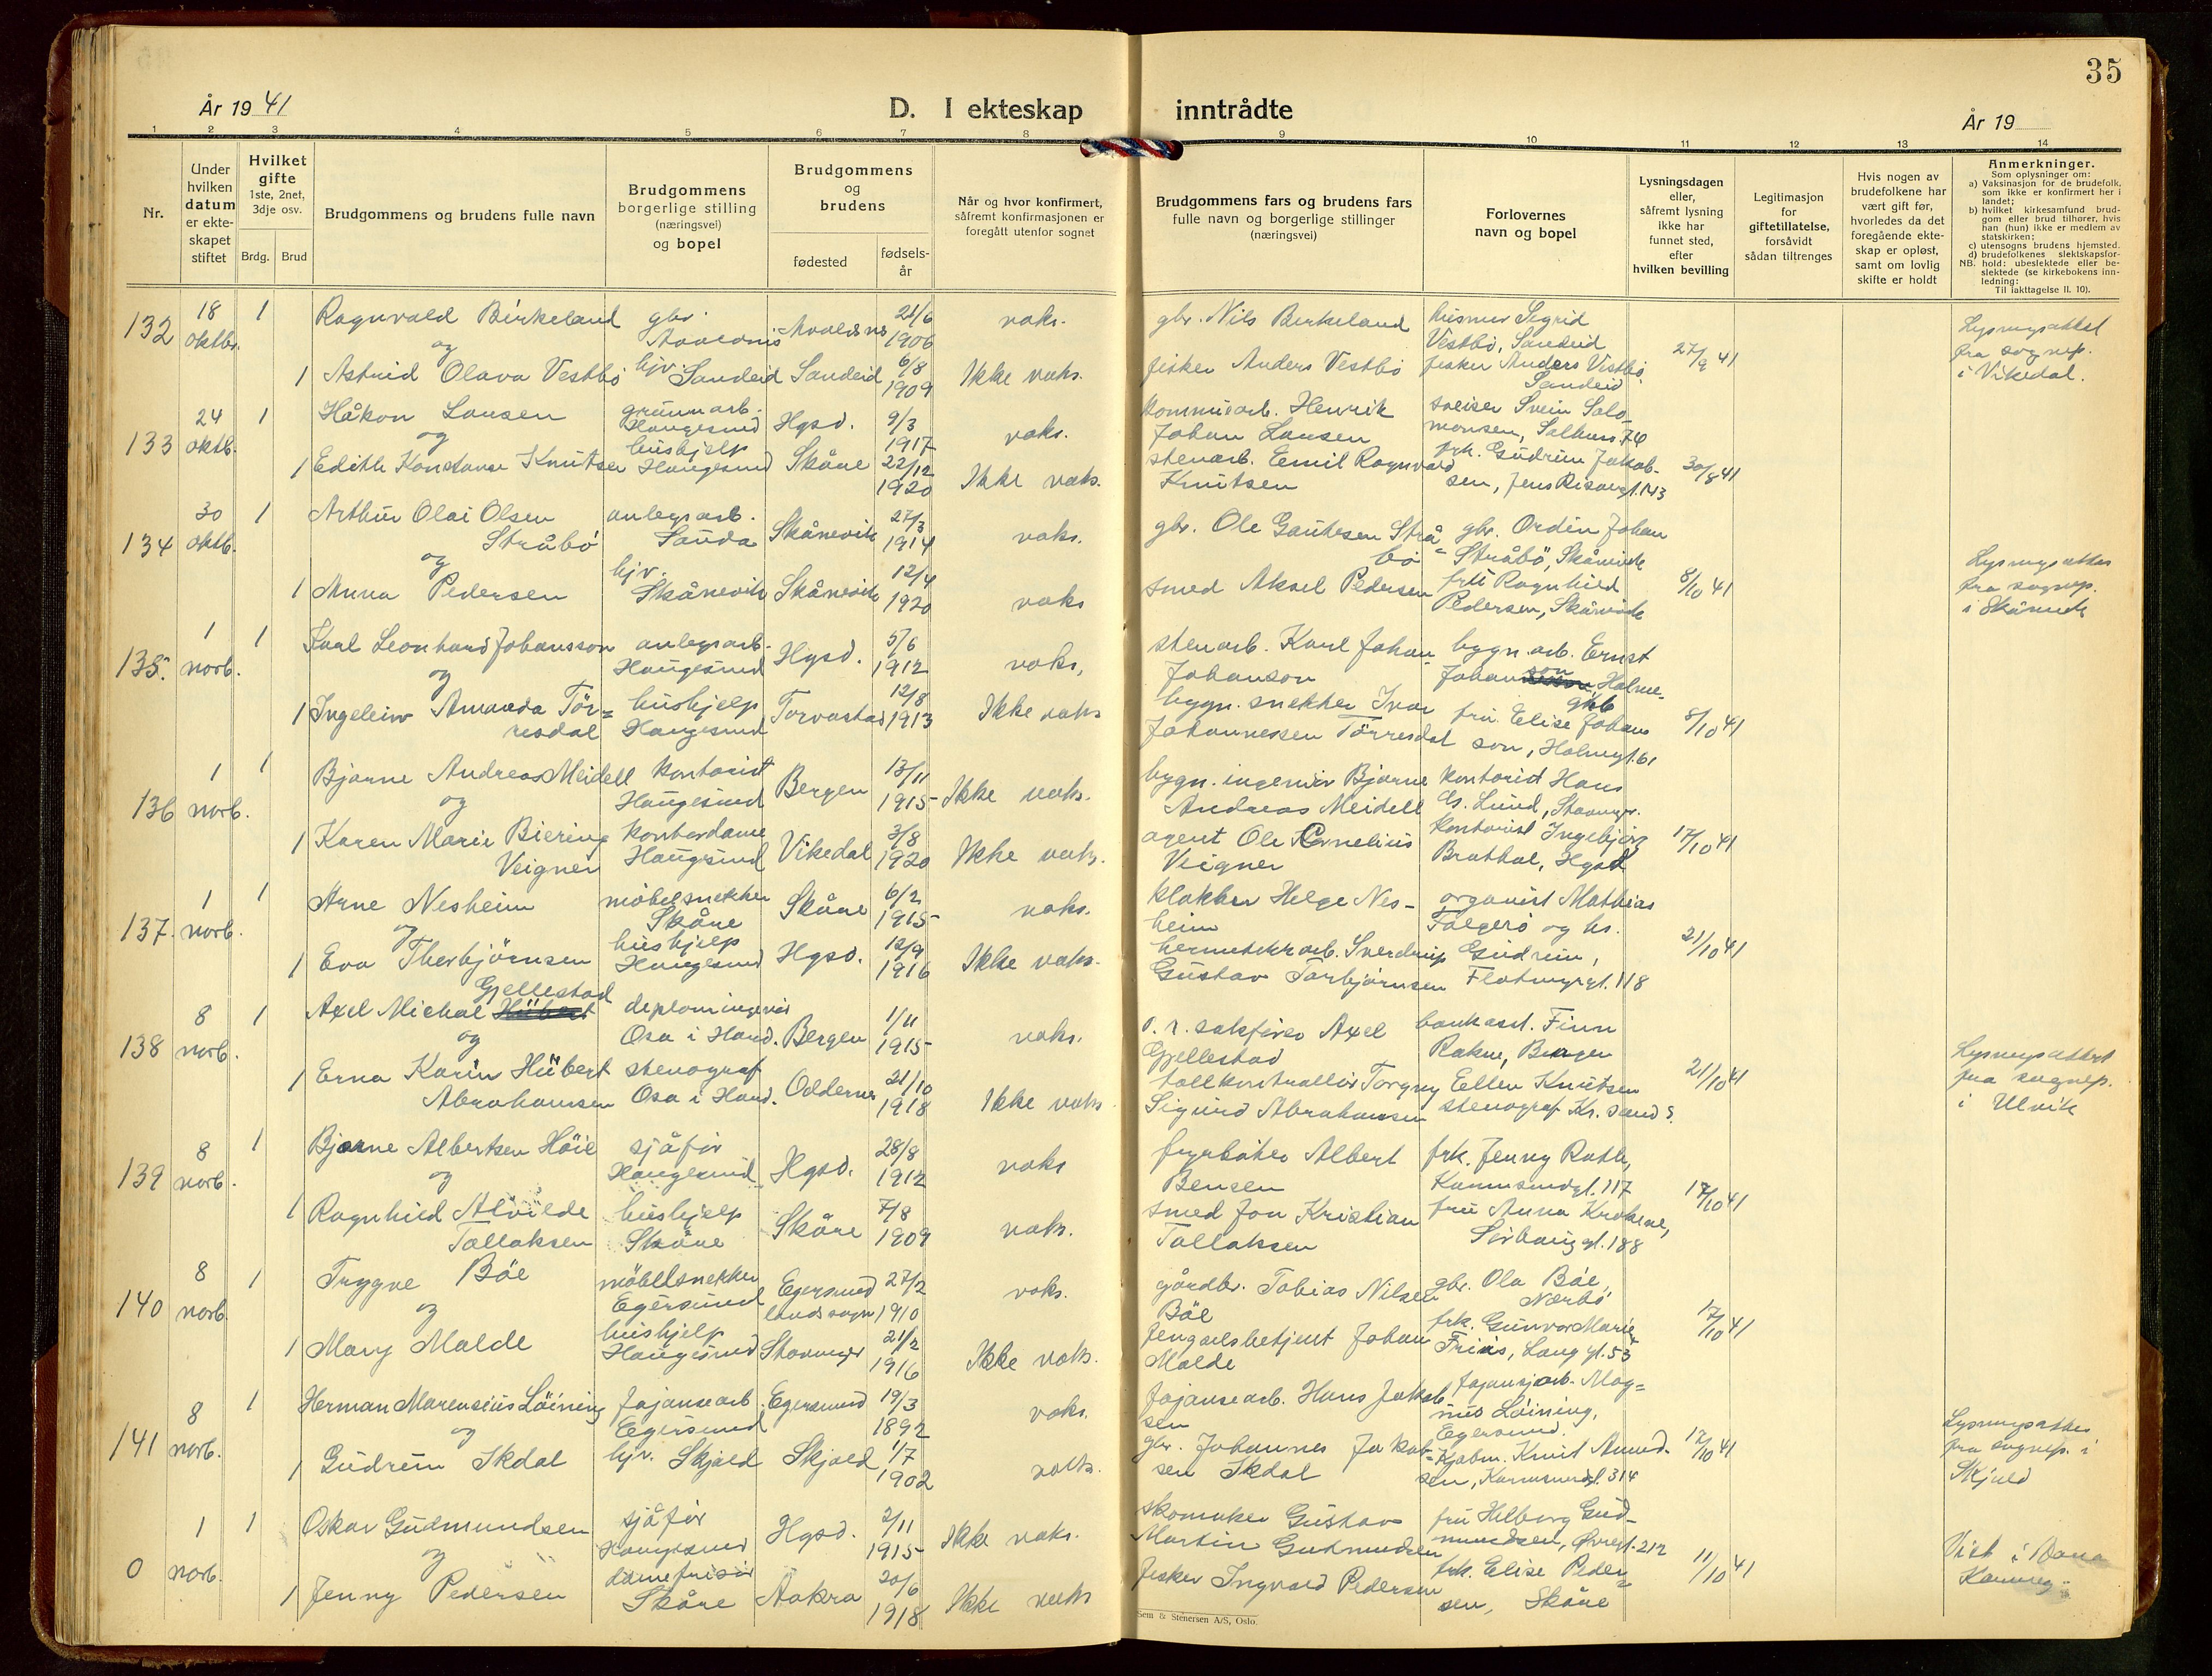 35
År 19 41
D. I ekteskap inntrådte
År 19
1 2 3 4 5 6 7 8 9 10 11 12 13 14
Nr.
Under
hvilken
datum
er ekte-
skapet
stiftet
Hvilket
gifte
1ste, 2net,
3dje osv.
Brdg. Brud
Brudgommens og brudens fulle navn
Brudgommens
borgerlige stilling
(næringsvei)
og bopel
Brudgommens
og
brudens
fødested
fødsels-
år
Når og hvor konfirmert,
såfremt konfirmasjonen er
foregått utenfor sognet
Brudgommens fars og brudens fars
fulle navn og borgerlige stillinger
(næringsvei)
Forlovernes
navn og bopel
Lysningsdagen
eller,
såfremt lysning
ikke har
funnet sted,
efter
hvilken bevilling
Legitimasjon
for
giftetillatelse,
forsåvidt
sådan tiltrenges
Hvis nogen av
brudefolkene har
vært gift før,
hvorledes da det
foregående ekte-
skap er opløst,
samt om lovlig
skifte er holdt
Anmerkninger.
Som oplysninger om:
a) Vaksinasjon for de brudefolk,
som ikke er konfirmert her i
landet;
b) hvilket kirkesamfund brud-
gom eller brud tilhører, hvis
han (hun) ikke er medlem av
statskirken;
c) utensogns brudens hjemsted.
d) brudefolkenes slektskapsfor-
hold: ubeslektede eller be-
slektede (se kirkebokens inn-
ledning:
NB. Til iakttagelse II. 10).
132
18
oktbr.
1
Ragnvald Birkeland
og
gbr.
Avaldsnes
21/6
1906
vaks.
gbr. Nils Birkeland
husmor Sigrid
Vestbø, Sandeid
1 Astrid Olava Vestbø
hjv. Sandeid
Sandeid
6/8
1909
Ikke vaks.
fisker Anders Vestbø
fisker Anders Vestbø
Sandeid
27/9 41
Lysningsattest
fra sognep.
i Vikedal.
133
24
oktb.
1
Håkon Lausen
og
grunnarb.
Haugesund
Hgsd.
9/3
1917
vaks.
kommunearb. Henrik
Johan Lausen
sveiser Svein Salo-
monsen, Salhusv. 74
1 Edith Konstanse Knutsen
hushjelp
Haugesund
Skåre
22/12
1920
Ikke vaks.
stenarb. Emil Ragnvald
Knutsen
frk. Gudrun Jakob-
sen, Jens Risøesgt. 143
30/8 41
134
30
oktb.
1
Arthur Olai Olsen
Stråbø
og
anlegsarb.
Sauda
Skånevik
27/3
1914
vaks.
gbr. Ole Gautesen Strå-
bø
gbr. Ordin Johan
Stråbø, Skånevik
1 Anna Pedersen
hjv.
Skånevik
Skånevik
12/4
1920
vaks
smed Aksel Pedersen
fru Ragnhild
Pedersen, Skånevik
8/10 41
Lysningsattest
fra sognep.
i Skånevik
135.
1
norb.
1
Karl Leonhard Johansson
og
anlegsarb.
Haugesund
Hgsd.
5/6
1912
vaks,
stenarb. Karl Johan
Johanson
bygn. arb. Ernst
Johanson, Holme-
gt.6
1 Ingeleiv Amanda Tør=
resdal
hushjelp
Haugesund
Torvastad
12/8
1913
Ikke vaks
bygn. snekker Ivar
Johannessen Tørresdal
fru. Elise Johans
son, Holmegt. 61
8/10 41
136
1
norb.
1
Bjarne Andreas Meidell
og
kontorist
Haugesund
Bergen
13/11
1915
Ikke vaks.
bygn. ingeniør Bjarne
Andreas Meidell
kontorist Hans
Chr. Lund, Stavanger.
1 Karen Marie Biering
Veigner
kontordame
Haugesund
Vikedal
3/8
1920
Ikke vaks.
agent Ole Cornelius
Veigner
kontorist Ingebjørg
Brathal, Hgsd
17/10 41
137.
1
norb.
1
Arne Nesheim
og
møbelsnekker
Skåre
Skåre
6/2
1915
vaks.
klokker Helge Nes-
heim
organist Mathias
Falgerø og hs.
1 Eva Therbjørnsen
hushjelp
Haugesund
Hgsd.
12/9
1916
Ikke vaks.
hermetikkarb. Sverdrup
Gustav Torbjørnsen
Gudrun,
Flotmyrgt. 118
21/10 41
138
8
norb.
1
Gjellestad
Axel Michal Hübert
og
deplomingeniør
Osa i Hard.
Bergen
1/11
1915
vaks.
o. r. sakfører Axel
Gjellestad
bankass. Finn
Rakne, Bergen
1 Erna Karin Hübert
Abrahamsen
stenograf
Osa i Hard.
Oddernes
21/10
1918
Ikke vaks
tollkontrollør Torgny
Sigurd Abrahamsen
Ellen Knutsen
stenograf Kr. sand S.
21/10 41
Lysningsattest
fra sognep.
i Ulvik
139
8
norb.
1
Bjarne Albertsen Høie
og
sjåfør
Haugesund
Hgsd.
28/8
1912
vaks
fyrbøter Albert
Bensen
frk. Jenny Rath,
Karmsundgt. 117
1 Ragnhild Alvilde
Tallaksen
hushjelp
Skåre
Skåre
7/8
1909
vaks.
smed Jon Kristian
Tallaksen
fru Anna Krokene,
Sørhauggt. 188
17/10 41
140
8
norb.
1
Trygve Bøe
og
møbelsnekker
Egersund
Egersund
landssogn
27/2
1910
vaks.
gårdbr. Tobias Nilsen
Bøe
gbr. Ola Bøe,
Nærbø
1 Mary Malde
hushjelp
Haugesund
Stavanger
21/2
1916
Ikke vaks.
fengselsbetjent Johan
Malde
frk. Gunvor Marie
Friis, Langgt. 53
17/10 41
141
8
norb.
1
Herman Marensius Løining
og
fajansearb.
Egersund
Egersund
19/3
1892
vaks.
fajansearb. Hans Jakob
sen
fajansearb. Mag=
nus Løining,
Egersund.
1 Gudrun Ikdal
hjv. Skjold
Skjold
1/7
1902
vaks.
gbr. Johannes Jakob=
sen Ikdal
Kjøbm. Knut Amund-
sen, Karmsundgt. 314
12/10 41
Lysningsattest
fra sognep. i
Skjold
0
1
norb.
1
Oskar Gudmundsen
og
sjåfør
Haugesund
Hgsd.
2/11
1915
Ikke vaks.
skomaker Gustav
Martin Gudmundsen
fru Helborg Gud-
mundsen, Øvregt. 212
1 Jenny Pedersen
damefrisør
Skåre
Aakra
20/6
1918
Ikke vaks
fisker Ingvald Pedersen
frk. Elise Peder=
sen, Skåre
11/10 41
Viet i
Sem & Stenersen A/S, Oslo.